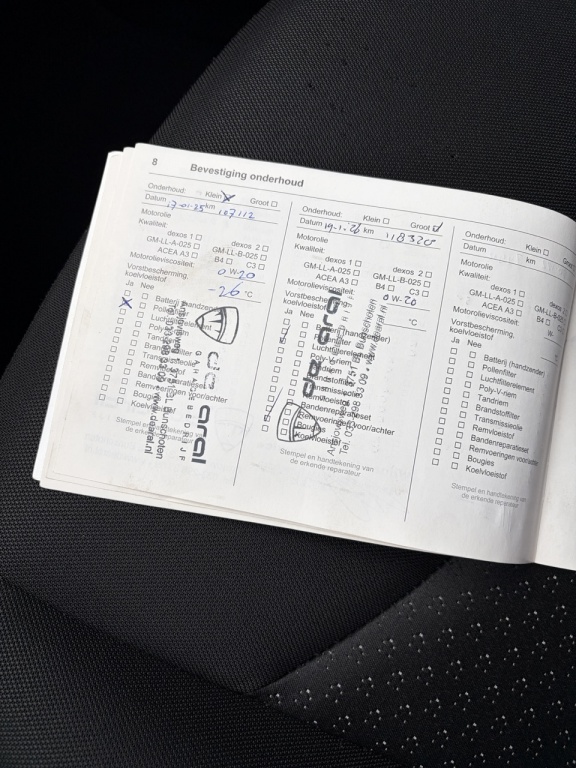 8
Bevestiging onderhoud
Onderhoud: Klein Groot
Datum 17-01-25 km 107112
Motorolie
Kwaliteit:
dexos 1 dexos 2
GM-LL-A-025 GM-LL-B-025
ACEA A3 B4 C3
Motorolieviscositeit: 0 W-20
Vorstbescherming, koelvloeistof -26 °C
Ja Nee
X Batterij (handzender)
Pollenfilter
Luchtfilterelement
Poly-V-riem
Tandriem
Brandstoffilter
Transmissieolie
Remvloeistof
Bandenreparatieset
Remvoeringen voor/achter
Bougies
Koelvloeistof
de aral
GARAGEBEDRIJF
Bunschoten
www.dearal.nl
Stempel en
de erkende reparateur
Onderhoud: Klein Groot
Datum 19-1-26 km 118320
Motorolie
Kwaliteit:
dexos 1 dexos 2
GM-LL-A-025 GM-LL-B-025
ACEA A3 B4 C3
Motorolieviscositeit: 0 W-20
Vorstbescherming, koelvloeistof °C
Ja Nee
Batterij (handzender)
Luchtfilterelement
Poly-V-riem
Tandriem
Brandstoffilter
Transmissieolie
Remvloeistof
Bandenreparatieset
Remvoeringen voor/achter
Bougies
Koelvloeistof
de aral
Bunschoten
www.dearal.nl
Stempel en handtekening van
de erkende reparateur
Onderhoud: Klein
Datum km
Motorolie
Kwaliteit:
dexos 1
GM-LL-A-025
ACEA A3 B4
Motorolieviscositeit: W-
Vorstbescherming, koelvloeistof
Ja Nee
Batterij (handzender)
Pollenfilter
Luchtfilterelement
Poly-V-riem
Tandriem
Brandstoffilter
Transmissieolie
Remvloeistof
Bandenreparatieset
Remvoeringen voor/achter
Bougies
Koelvloeistof
Stempel en handtekening van
de erkende reparateur